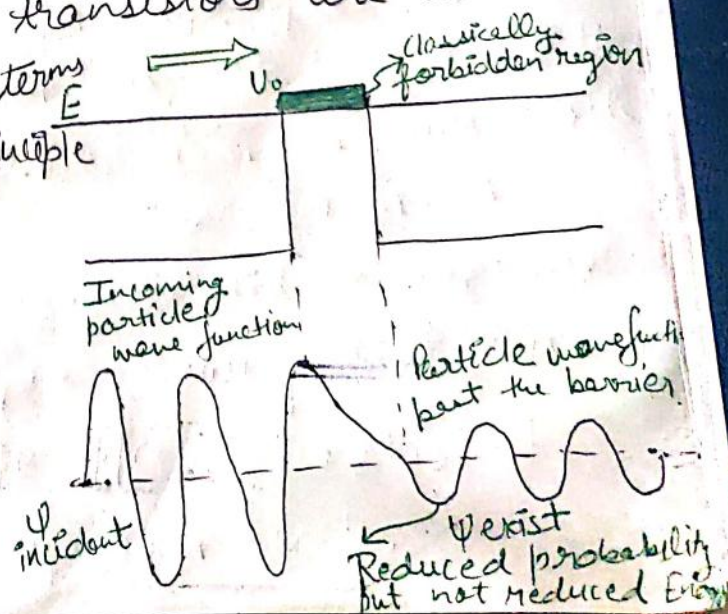 transistors
terms
E
U₀
Classically
forbidden region
Incoming
particle
wave function
Particle wavefuncti
past the barrier.
ψ
incident
ψ exist
Reduced probability
but not reduced